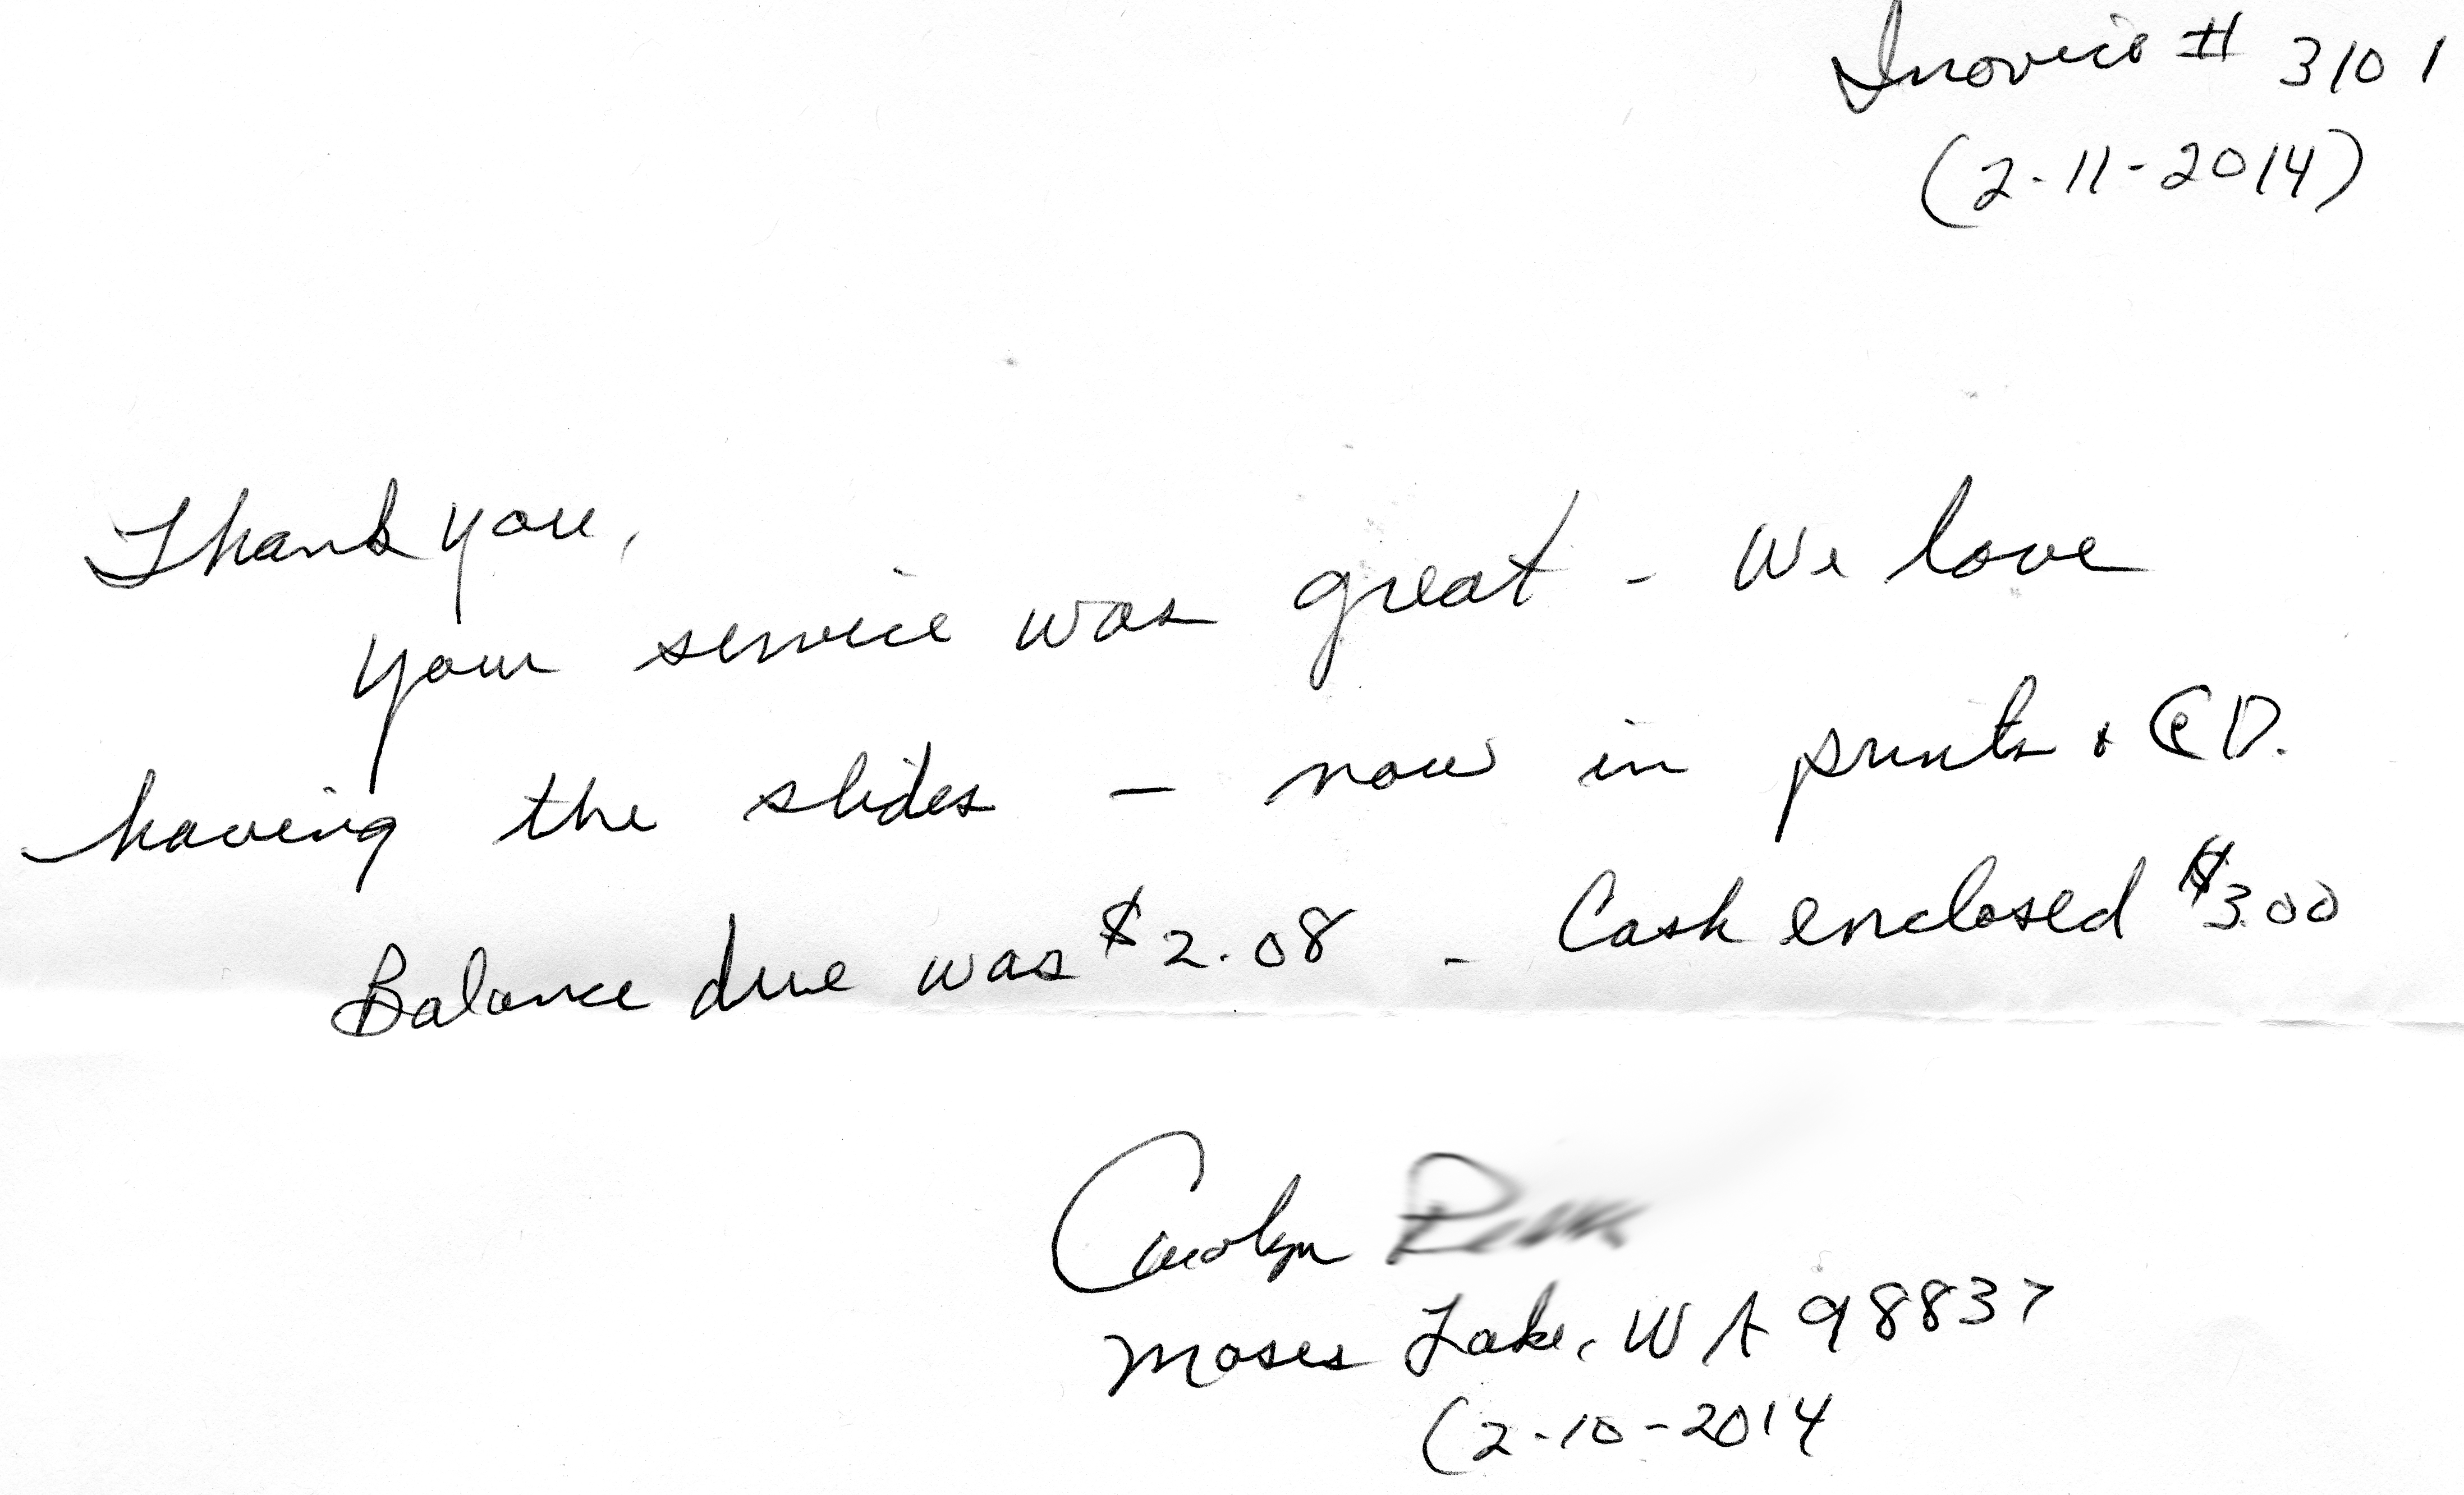 Inovice # 3101
(2-11-2014)
Thank you,
your service was great - We love
having the slides - now in prints & CD.
Balance due was $2.08 - Cash enclosed $3.00
Carolyn
Moses Lake, WA 98837
(2-10-2014